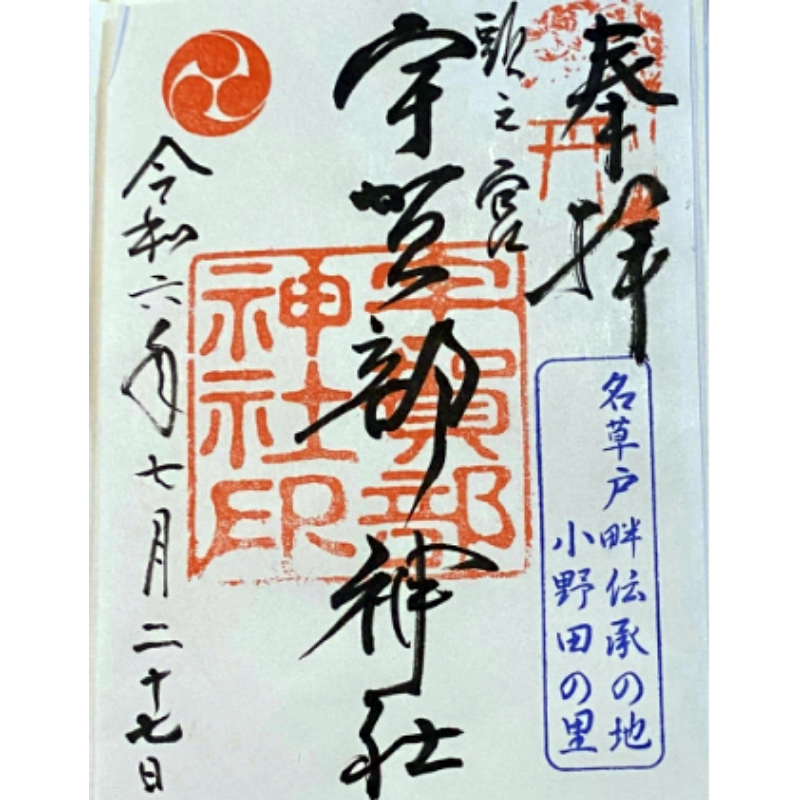 奉拝
名草戸畔伝承の地
小野田の里
頭之宮
宇賀部神社
宇賀部
神社印
令和六年七月二十七日